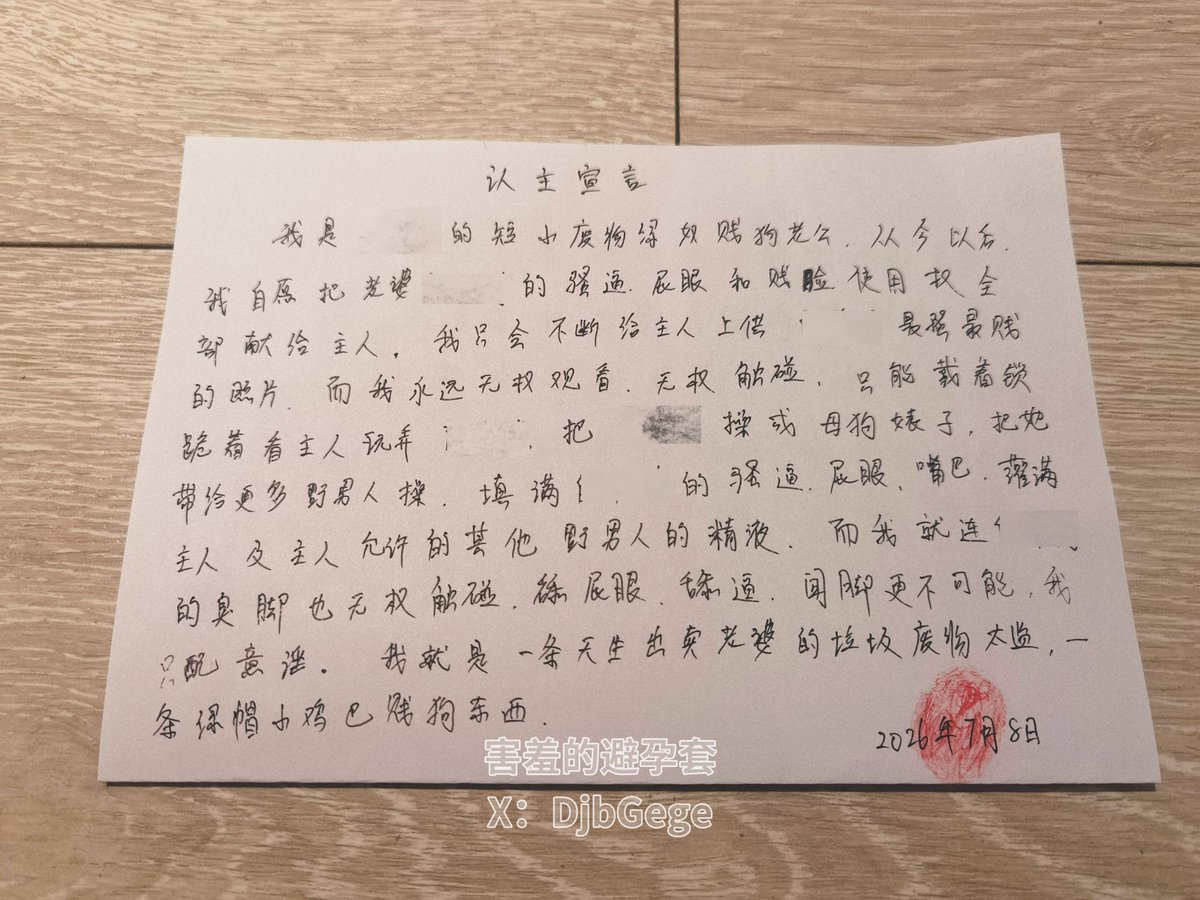 认主宣言
我是 的短小废物绿奴贱狗老公.从今以后.
我自愿把老婆 的骚逼.屁眼和贱脸使用权全
部献给主人.我只会不断给主人上供 最骚最贱
的照片.而我永远无权观看.无权触碰.只能载着锁
跪着看主人玩弄 .把 操成母狗婊子,把她
带给更多野男人操.填满 的骚逼.屁眼、嘴巴.灌满
主人及主人允许的其他野男人的精液.而我就连
的臭脚也无权触碰.舔屁眼.舔逼.闻脚更不可能,我
只配意淫。我就是一条天生出卖老婆的垃圾废物太监,一
条绿帽小鸡巴贱狗东西.
2026年7月8日
害羞的避孕套
X：DjbGege